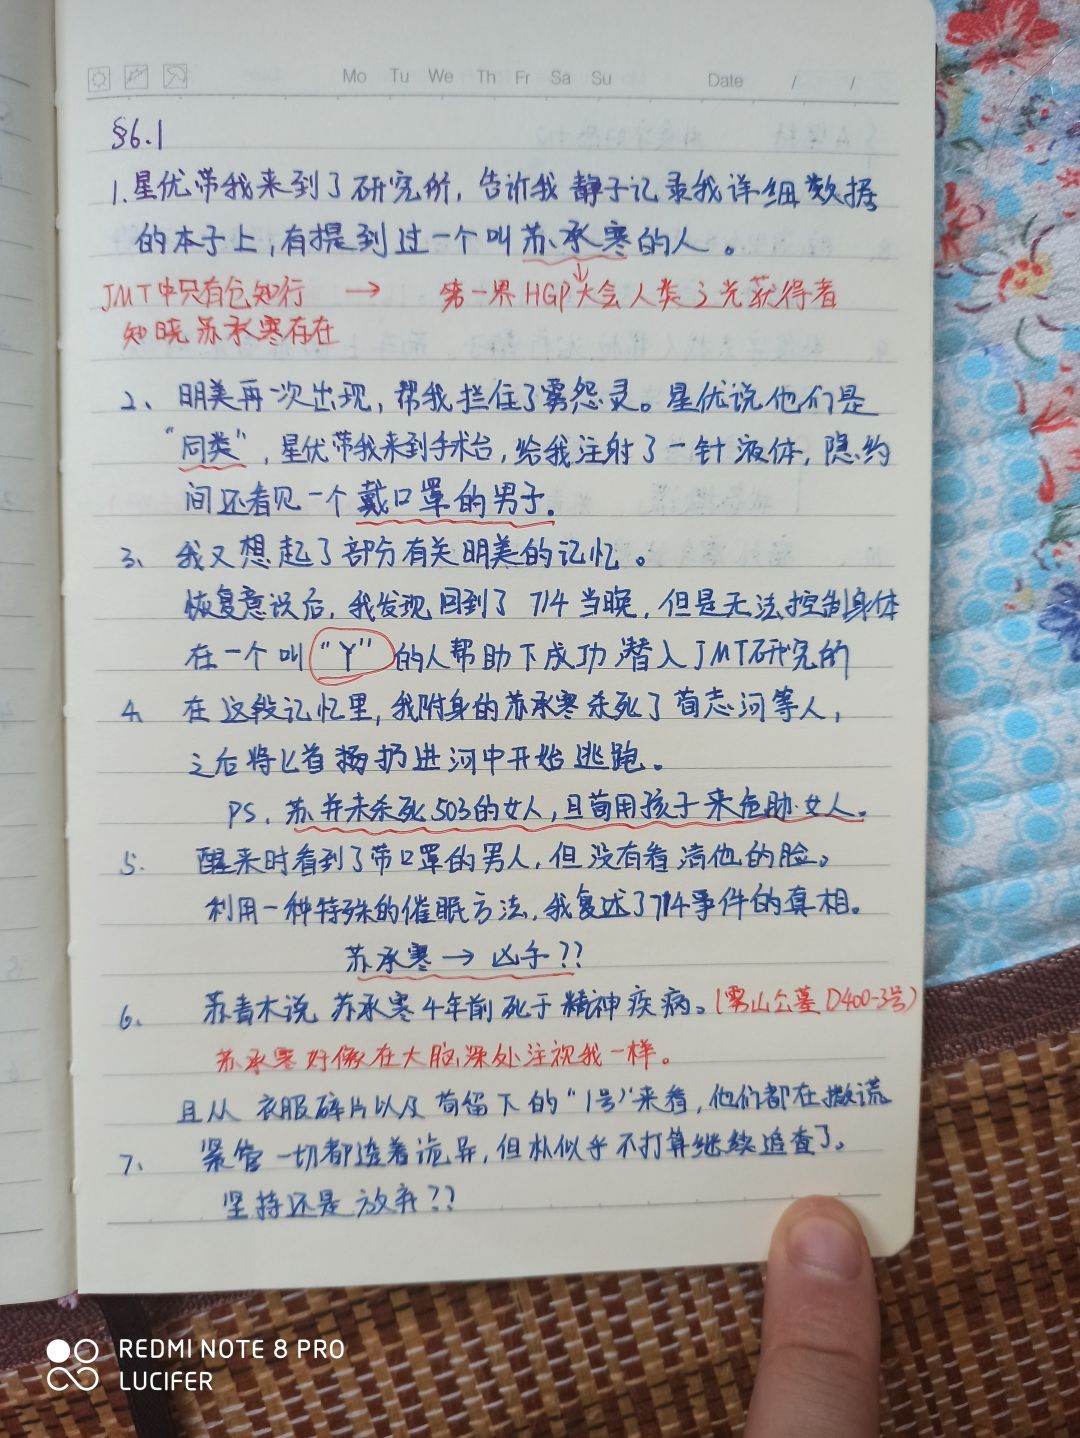 Mo Tu We Th Fr Sa Su Date / /
§6.1
1.星优带我来到了研究所，告诉我静子记录我详细数据
的本子上，有提到过一个叫苏承寒的人。
JMT中只有仓知行 → 第一界HGP大会人类之光获得者
知晓苏承寒存在
2、明美再次出现，帮我拦住了雾怨灵。星优说他们是
“同类”，星优带我来到手术台，给我注射了一针液体，隐约
间还看见一个戴口罩的男子。
3、我又想起了部分有关明美的记忆。
恢复意识后，我发现回到了714当晚，但是无法控制身体
在一个叫“Y”的人帮助下成功潜入JMT研究的
4、在这段记忆里，我附身的苏承寒杀死了荀志河等人，
之后将匕首扬扔进河中开始逃跑。
PS.苏并未杀死503的女人，且荀用孩子来危胁女人。
5.醒来时看到了带口罩的男人，但没有看清他的脸。
利用一种特殊的催眠方法，我复述了714事件的真相。
苏承寒→凶手??
6、苏青木说苏承寒4年前死于精神疾病。(雾山公墓D400-3号)
苏承寒好像在大脑深处注视我一样。
且从衣服碎片以及荀留下的“1号”来看，他们都在撒谎
7、紧管一切都透着诡异，但朴似乎不打算继续追查了。
坚持还是放弃??
REDMI NOTE 8 PRO
LUCIFER